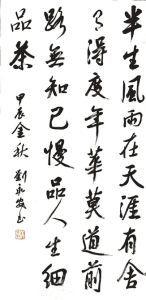 半生風雨在天涯有舍
可得度年華莫道前
路無知己慢品人生細
品茶
甲辰金秋劉永發書